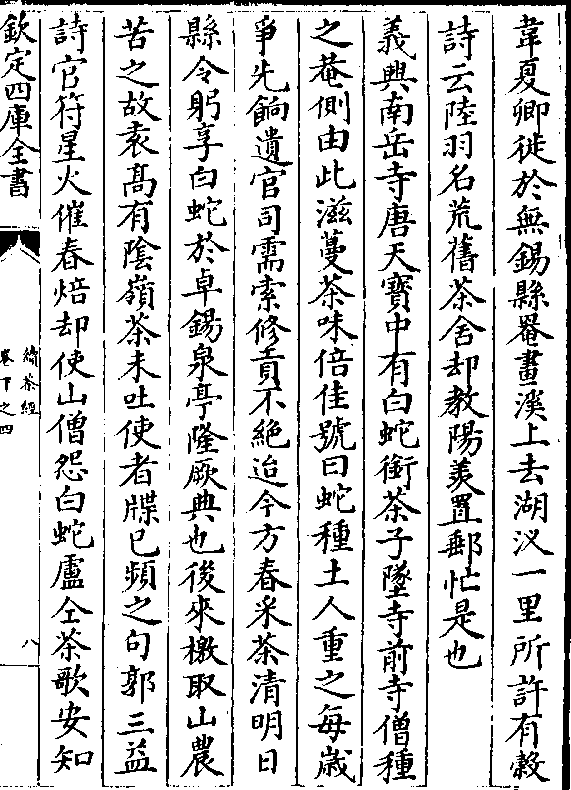 韋夏卿徙於無錫縣罨畫溪上去湖㳇一里所許有穀
詩云陸羽名荒舊茶舍却教陽羨置郵忙是也
義興南岳寺唐天寶中有白蛇銜茶子墜寺前寺僧種
之菴側由此滋蔓茶味倍佳號曰蛇種土人重之每歳
爭先餉遺官司需索修貢不絶迨今方春采茶清明日
縣令躬享白蛇於卓錫泉亭隆厥典也後來檄取山農
苦之故袁髙有陰嶺茶未吐使者牒已頻之句郭三益
詩官符星火催春焙却使山僧怨白蛇盧仝茶歌安知
欽定四庫全書
續茶經
卷下之四
八